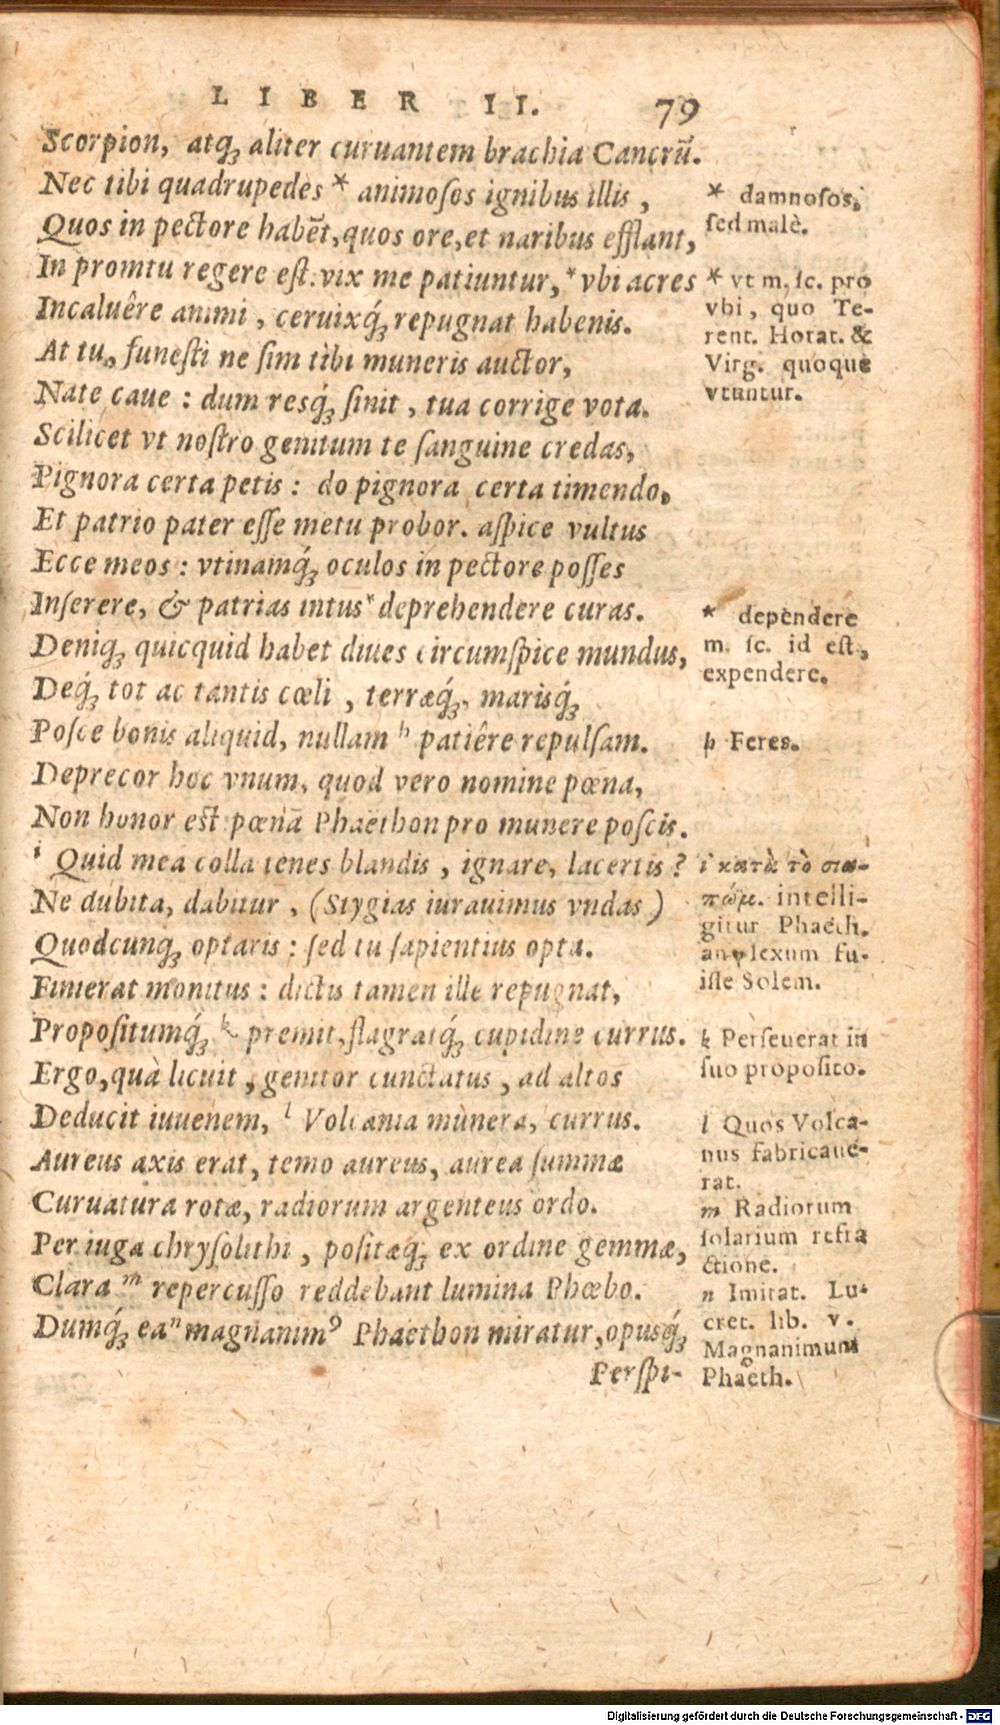 LIBER II. 79
Scorpion, atq́; aliter curuantem brachia Cancrũ.
Nec tibi quadrupedes * animoſos ignibus illis,
Quos in pectore habẽt, quos ore, et naribus efflant,
In promtu regere eſt: vix me patiuntur, * vbi acres
Incaluêre animi, ceruixq́; repugnat habenis.
At tu, funeſti ne ſim tibi muneris auctor,
Nate caue: dum resq́; ſinit, tua corrige vota.
Scilicet vt noſtro genitum te ſanguine credas,
Pignora certa petis: do pignora certa timendo,
Et patrio pater eſſe metu probor. aſpice vultus
Ecce meos: vtinamq́; oculos in pectore poſſes
Inſerere, & patrias intus * deprehendere curas.
Deniq; quicquid habet diues circumſpice mundus,
Deq́; tot ac tantis cœli, terræq́;, marisq́;
Poſce bonis aliquid, nullam h patiêre repulſam.
Deprecor hoc vnum, quod vero nomine pœna,
Non honor eſt: pœnã Phaëthon pro munere poſcis.
i Quid mea colla tenes blandis, ignare, lacertis?
Ne dubita, dabitur, (Stygias iurauimus vndas)
Quodcunq; optaris: ſed tu ſapientius opta.
Finierat monitus: dictis tamen ille repugnat,
Propoſitumq́; k premit, flagratq́; cupidine currus.
Ergo, quà licuit, genitor cunctatus, ad altos
Deducit iuuenem, l Volcania munera, currus.
Aureus axis erat, temo aureus, aurea ſummæ
Curuatura rotæ, radiorum argenteus ordo.
Per iuga chryſolithi, poſitæq; ex ordine gemmæ,
Clara m repercuſſo reddebant lumina Phœbo.
Dumq́; ea n magnanimꝰ Phaethon miratur, opusq́;
Perſpi-
* damnoſos,
ſed malè.
* vt m, ſc. pro
vbi, quo Te-
rent. Horat. &
Virg. quoque
vtuntur.
* depèndere
m. ſc. id eſt,
expendere.
h Feres.
i κατὰ τὸ σιω-
πώμ. intelli-
gitur Phaëth.
amplexum fu-
iſſe Solem.
k Perſeuerat in
ſuo propoſito.
l Quos Volca-
nus fabricaue-
rat.
m Radiorum
ſolarium refra
ctione.
n Imitat. Lu-
cret. lib. v.
Magnanimum
Phaëth.
Digitalisierung gefördert durch die Deutsche Forschungsgemeinschaft - DFG